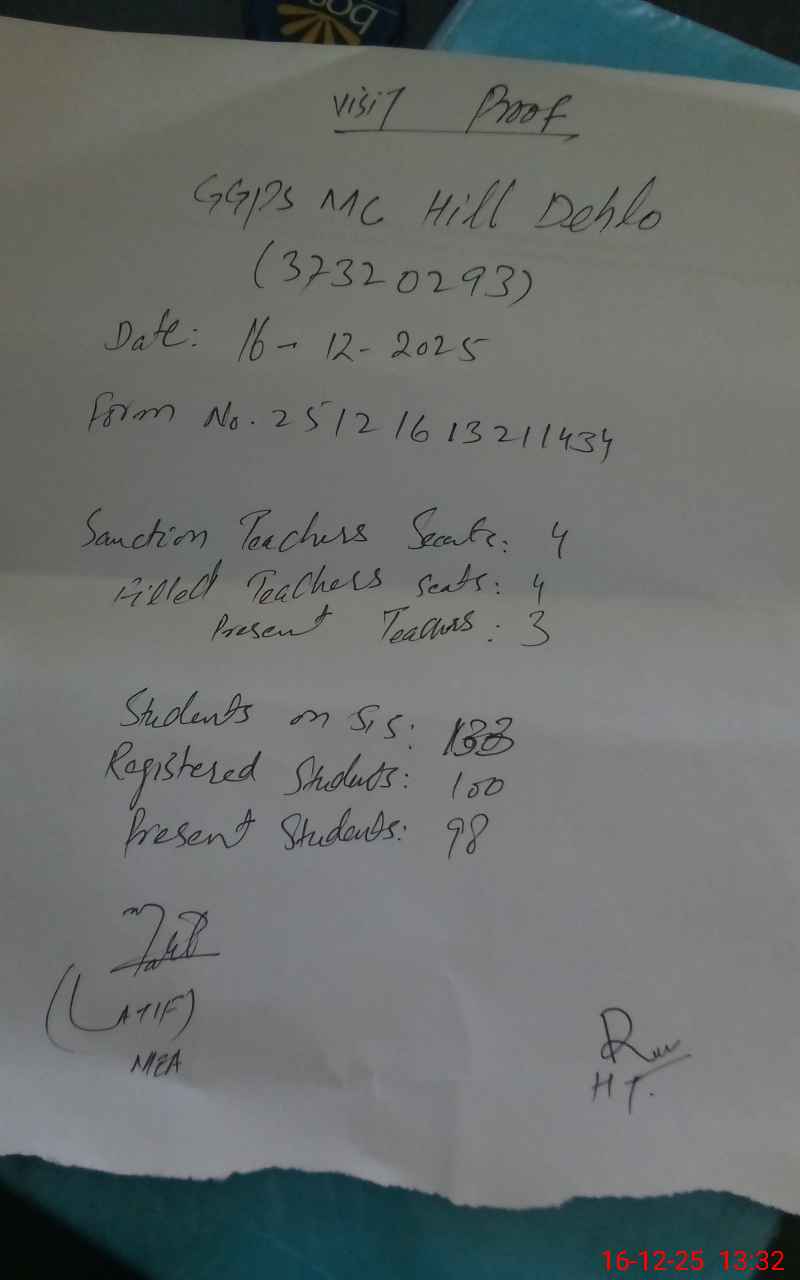 visit Proof
GGPS MC Hill Dehlo
(37320293)
Date: 16-12-2025
Form No. 25121613211434
Sanction Teachers Seats: 4
Filled Teachers seats: 4
Present Teachers: 3
Students on SIS:
Registered Students: 100
Present Students: 98
(LATIF)
MEA
HT.
16-12-25 13:32